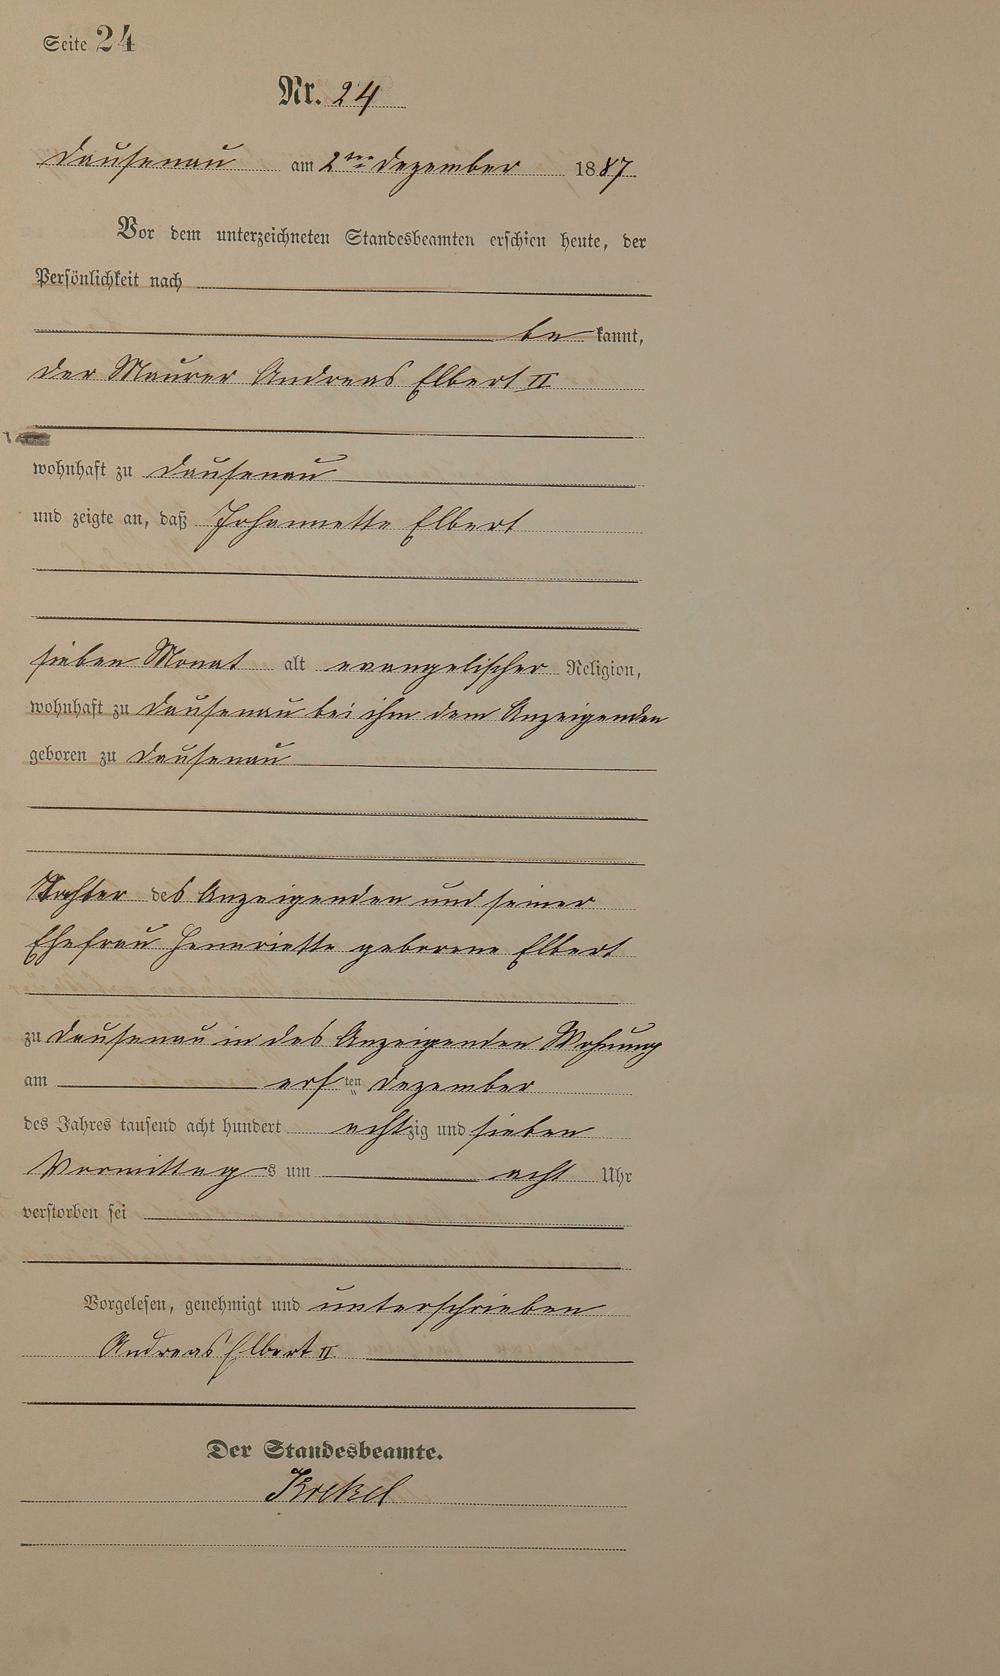 Seite 24
Nr. 24
Dausenau am 2ten Dezember 1887
Vor dem unterzeichneten Standesbeamten erschien heute, der
Persönlichkeit nach
be kannt,
der Maurer Andreas Elbert II
wohnhaft zu Dausenau
und zeigte an, daß Johannette Elbert
sieben Monat alt evangelischer Religion,
wohnhaft zu Dausenau bei ihm dem Anzeigenden
geboren zu Dausenau
Tochter des Anzeigenden und seiner
Ehefrau Hennriette geborene Elbert
zu Dausenau in des Anzeigenden Wohnung
am ersten Dezember
des Jahres tausend acht hundert achtzig und sieben
Vormittags um acht Uhr
verstorben sei
Vorgelesen, genehmigt und unterschrieben
Andreas Elbert II
Der Standesbeamte.
Krekel